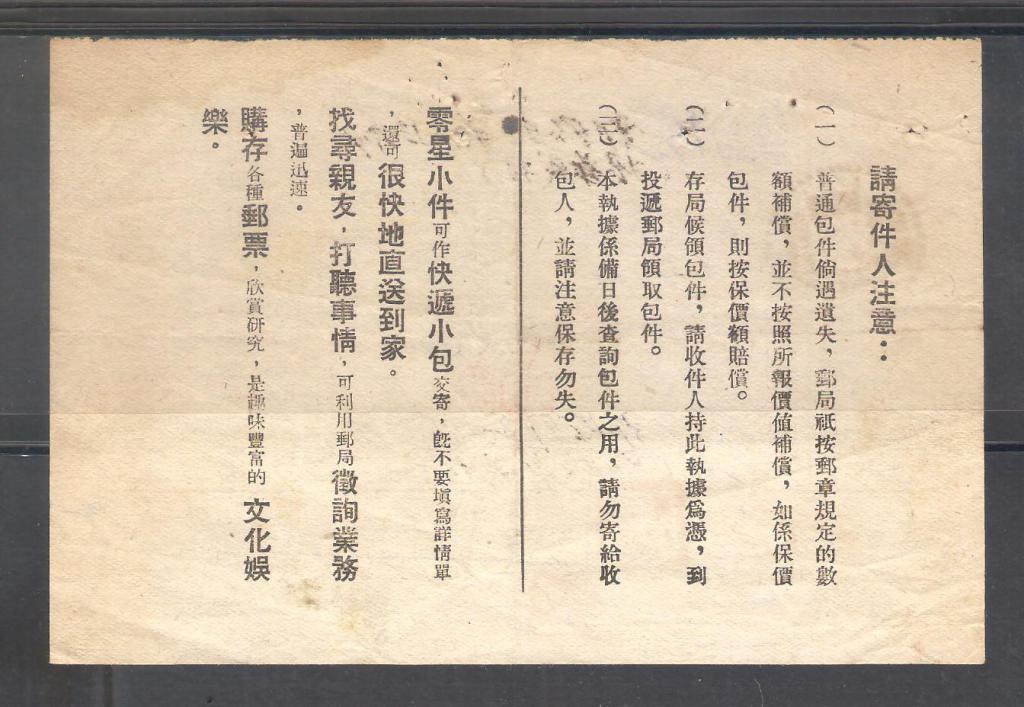 請寄件人注意：
（一）普通包件倘遇遺失，郵局祇按郵章規定的數
額補償，並不按照所報價値補償，如係保價
包件，則按保價額賠償。
（二）存局候領包件，請收件人持此執據爲憑，到
投遞郵局領取包件。
（三）本執據係備日後查詢包件之用，請勿寄給收
包人，並請注意保存勿失。
零星小件可作快遞小包交寄，旣不要塡寫詳情單
，還可很快地直送到家。
找尋親友，打聽事情，可利用郵局徵詢業務
，普遍迅速。
購存各種郵票，欣賞硏究，是趣味豐富的文化娛
樂。